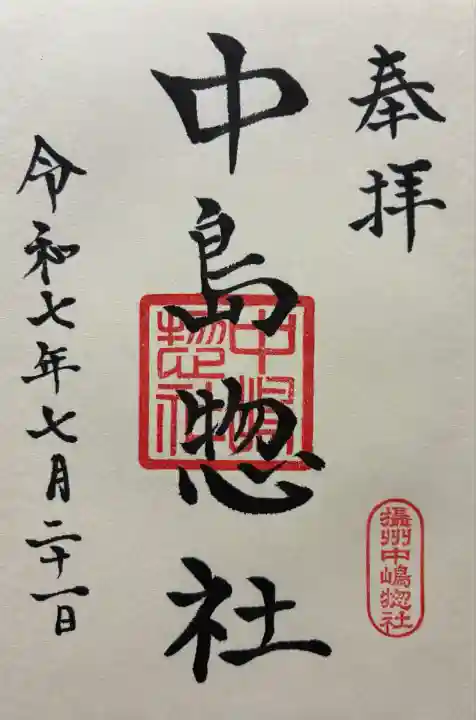 奉拝
中島惣社
中嶋
惣社
攝州中嶋惣社
令和七年七月二十一日